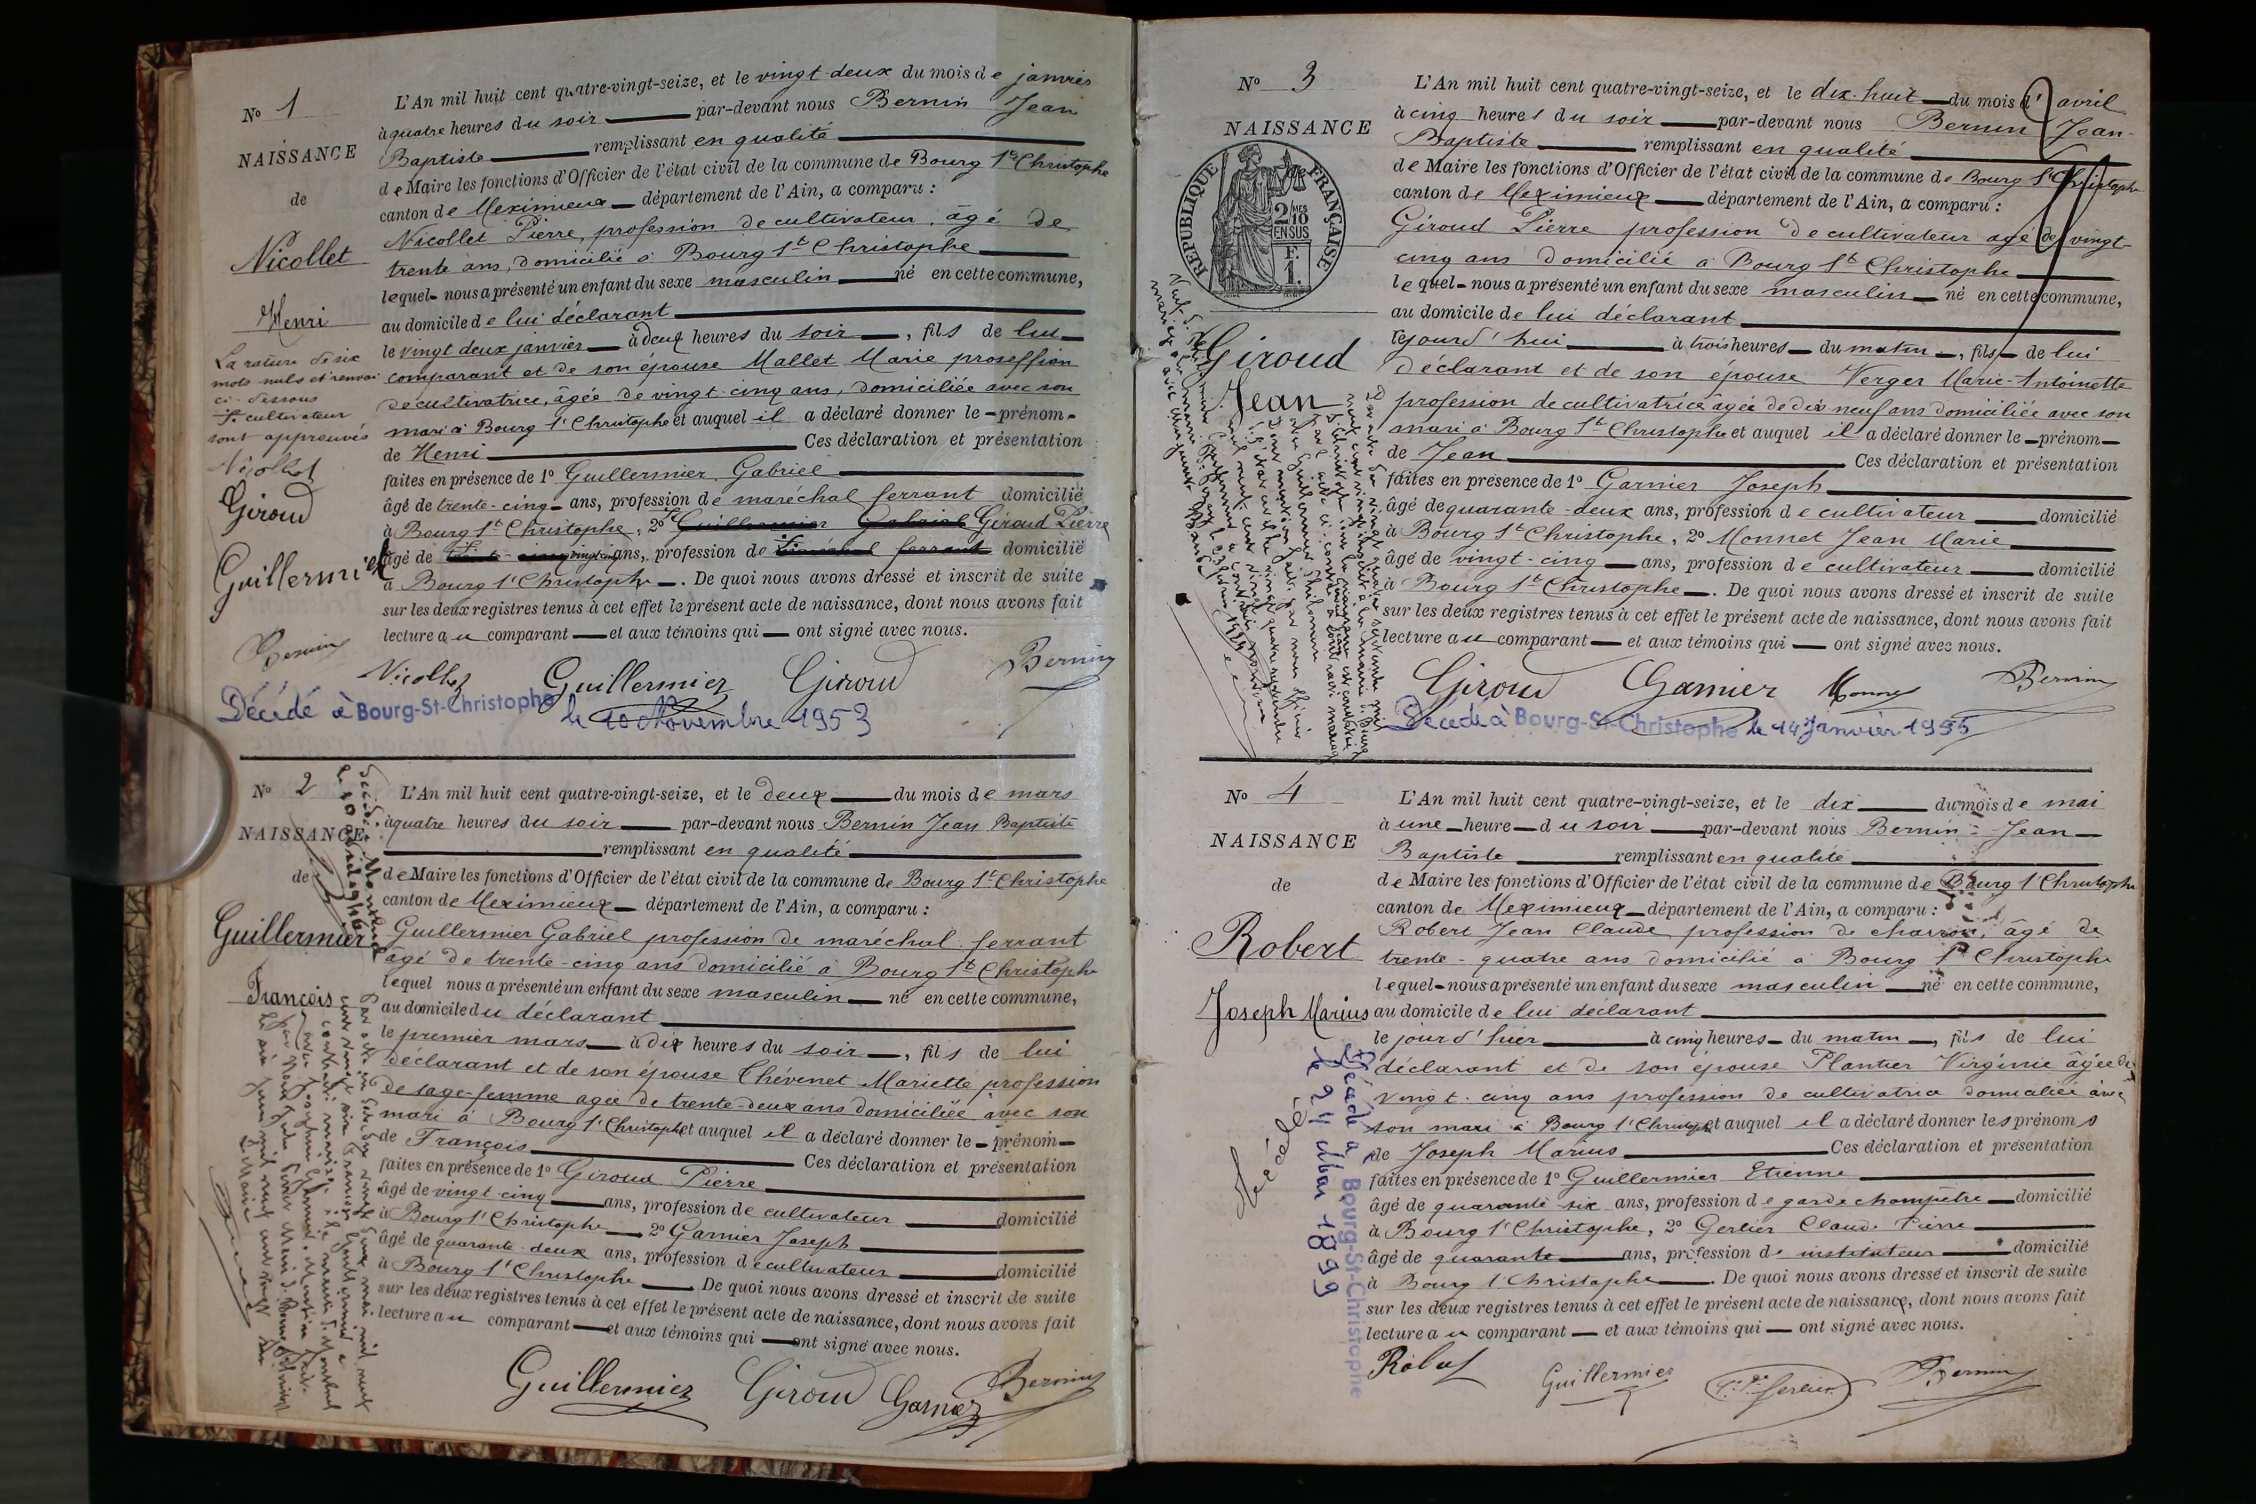 N° 1
NAISSANCE
de
Nicollet
Henri
La rature de six
mots nuls et renvoi
ci-dessous
cultivateur
sont approuvés
Nicollet
Giroud
Guillermier
Bernin
L'An mil huit cent quatre-vingt-seize, et le vingt-deux du mois de janvier
à quatre heures du soir par-devant nous Bernin Jean
Baptiste remplissant en qualité
de Maire les fonctions d'Officier de l'état civil de la commune de Bourg St Christophe
canton de Meximieux département de l'Ain, a comparu :
Nicollet Pierre, profession de cultivateur, âgé de
trente ans, domicilié à Bourg St Christophe
lequel nous a présenté un enfant du sexe masculin né en cette commune,
au domicile de lui déclarant
le vingt deux janvier à deux heures du soir, fils de lui
comparant et de son épouse Mallet Marie proseffion
de cultivatrice, âgée de vingt-cinq ans, domiciliée avec son
mari à Bourg St Christophe et auquel il a déclaré donner le prénom
de Henri Ces déclaration et présentation
faites en présence de 1° Guillermier Gabriel
âgé de trente-cinq ans, profession de maréchal ferrant domicilié
à Bourg St Christophe, 2° Guillermier Gabriel Giroud Pierre
âgé de trente-cinq vingt-cinq ans, profession de maréchal ferrant domicilié
à Bourg St Christophe. De quoi nous avons dressé et inscrit de suite
sur les deux registres tenus à cet effet le présent acte de naissance, dont nous avons fait
lecture au comparant et aux témoins qui ont signé avec nous.
Nicollet Guillermier Giroud Bernin
Décédé à Bourg-St-Christophe le 10 Novembre 1953
N° 2
NAISSANCE
de
Guillermier
François
Décédé à Montluel
L'An mil huit cent quatre-vingt-seize, et le deux du mois de mars
à quatre heures du soir par-devant nous Bernin Jean Baptiste
remplissant en qualité
de Maire les fonctions d'Officier de l'état civil de la commune de Bourg St Christophe
canton de Meximieux département de l'Ain, a comparu :
Guillermier Gabriel profession de maréchal ferrant
âgé de trente-cinq ans domicilié à Bourg St Christophe
lequel nous a présenté un enfant du sexe masculin né en cette commune,
au domicile du déclarant
le premier mars à dix heures du soir, fils de lui
déclarant et de son épouse Chévenet Mariette profession
de sage-femme agée de trente-deux ans domiciliée avec son
mari à Bourg St Christophe et auquel il a déclaré donner le prénom
de François Ces déclaration et présentation
faites en présence de 1° Giroud Pierre
âgé de vingt-cinq ans, profession de cultivateur domicilié
à Bourg St Christophe 2° Garnier Joseph
âgé de quarante-deux ans, profession de cultivateur domicilié
à Bourg St Christophe De quoi nous avons dressé et inscrit de suite
sur les deux registres tenus à cet effet le présent acte de naissance, dont nous avons fait
lecture au comparant et aux témoins qui ont signé avec nous.
Guillermier Giroud Garnier Bernin
N° 3
NAISSANCE
de
RÉPUBLIQUE FRANÇAISE
2/10 MES
EN SUS
F.
1.
Giroud
Jean
L'An mil huit cent quatre-vingt-seize, et le dix-huit du mois d'avril
à cinq heures du soir par-devant nous Bernin Jean-
Baptiste remplissant en qualité
de Maire les fonctions d'Officier de l'état civil de la commune de Bourg St Christophe
canton de Meximieux département de l'Ain, a comparu :
Giroud Pierre profession de cultivateur agé de vingt-
cinq ans domicilié à Bourg St Christophe
lequel nous a présenté un enfant du sexe masculin né en cette commune,
au domicile de lui déclarant
cejourd'hui à trois heures du matin, fils de lui
déclarant et de son épouse Verger Marie-Antoinette
profession de cultivatrice âgée de dix neuf ans domiciliée avec son
mari à Bourg St Christophe et auquel il a déclaré donner le prénom
de Jean Ces déclaration et présentation
faites en présence de 1° Garnier Joseph
âgé de quarante-deux ans, profession de cultivateur domicilié
à Bourg St Christophe, 2° Monnet Jean Marie
âgé de vingt-cinq ans, profession de cultivateur domicilié
à Bourg St Christophe. De quoi nous avons dressé et inscrit de suite
sur les deux registres tenus à cet effet le présent acte de naissance, dont nous avons fait
lecture au comparant et aux témoins qui ont signé avec nous.
Giroud Garnier Monnet Bernin
Décédé à Bourg-St-Christophe le 14 Janvier 1955
N° 4
NAISSANCE
de
Robert
Joseph Marius
Décédé
Décédé à Bourg-St-Christophe
L'An mil huit cent quatre-vingt-seize, et le dix du mois de mai
à une heure du soir par-devant nous Bernin Jean
Baptiste remplissant en qualité
de Maire les fonctions d'Officier de l'état civil de la commune de Bourg St Christophe
canton de Meximieux département de l'Ain, a comparu :
Robert Jean Claude profession de charron, âgé de
trente-quatre ans domicilié à Bourg St Christophe
lequel nous a présenté un enfant du sexe masculin né en cette commune,
au domicile de lui déclarant
le jour d'hier à cinq heures du matin, fils de lui
déclarant et de son épouse Plantier Virginie âgée de
vingt-cinq ans profession de cultivatrice domiciliée avec
son mari à Bourg St Christophe et auquel il a déclaré donner les prénoms
de Joseph Marius Ces déclaration et présentation
faites en présence de 1° Guillermier Etienne
âgé de quarante six ans, profession de garde champêtre domicilié
à Bourg St Christophe, 2° Gerlier Claude Pierre
âgé de quarante ans, profession d'instituteur domicilié
à Bourg St Christophe. De quoi nous avons dressé et inscrit de suite
sur les deux registres tenus à cet effet le présent acte de naissance, dont nous avons fait
lecture au comparant et aux témoins qui ont signé avec nous.
Robert Guillermier Gerlier Bernin